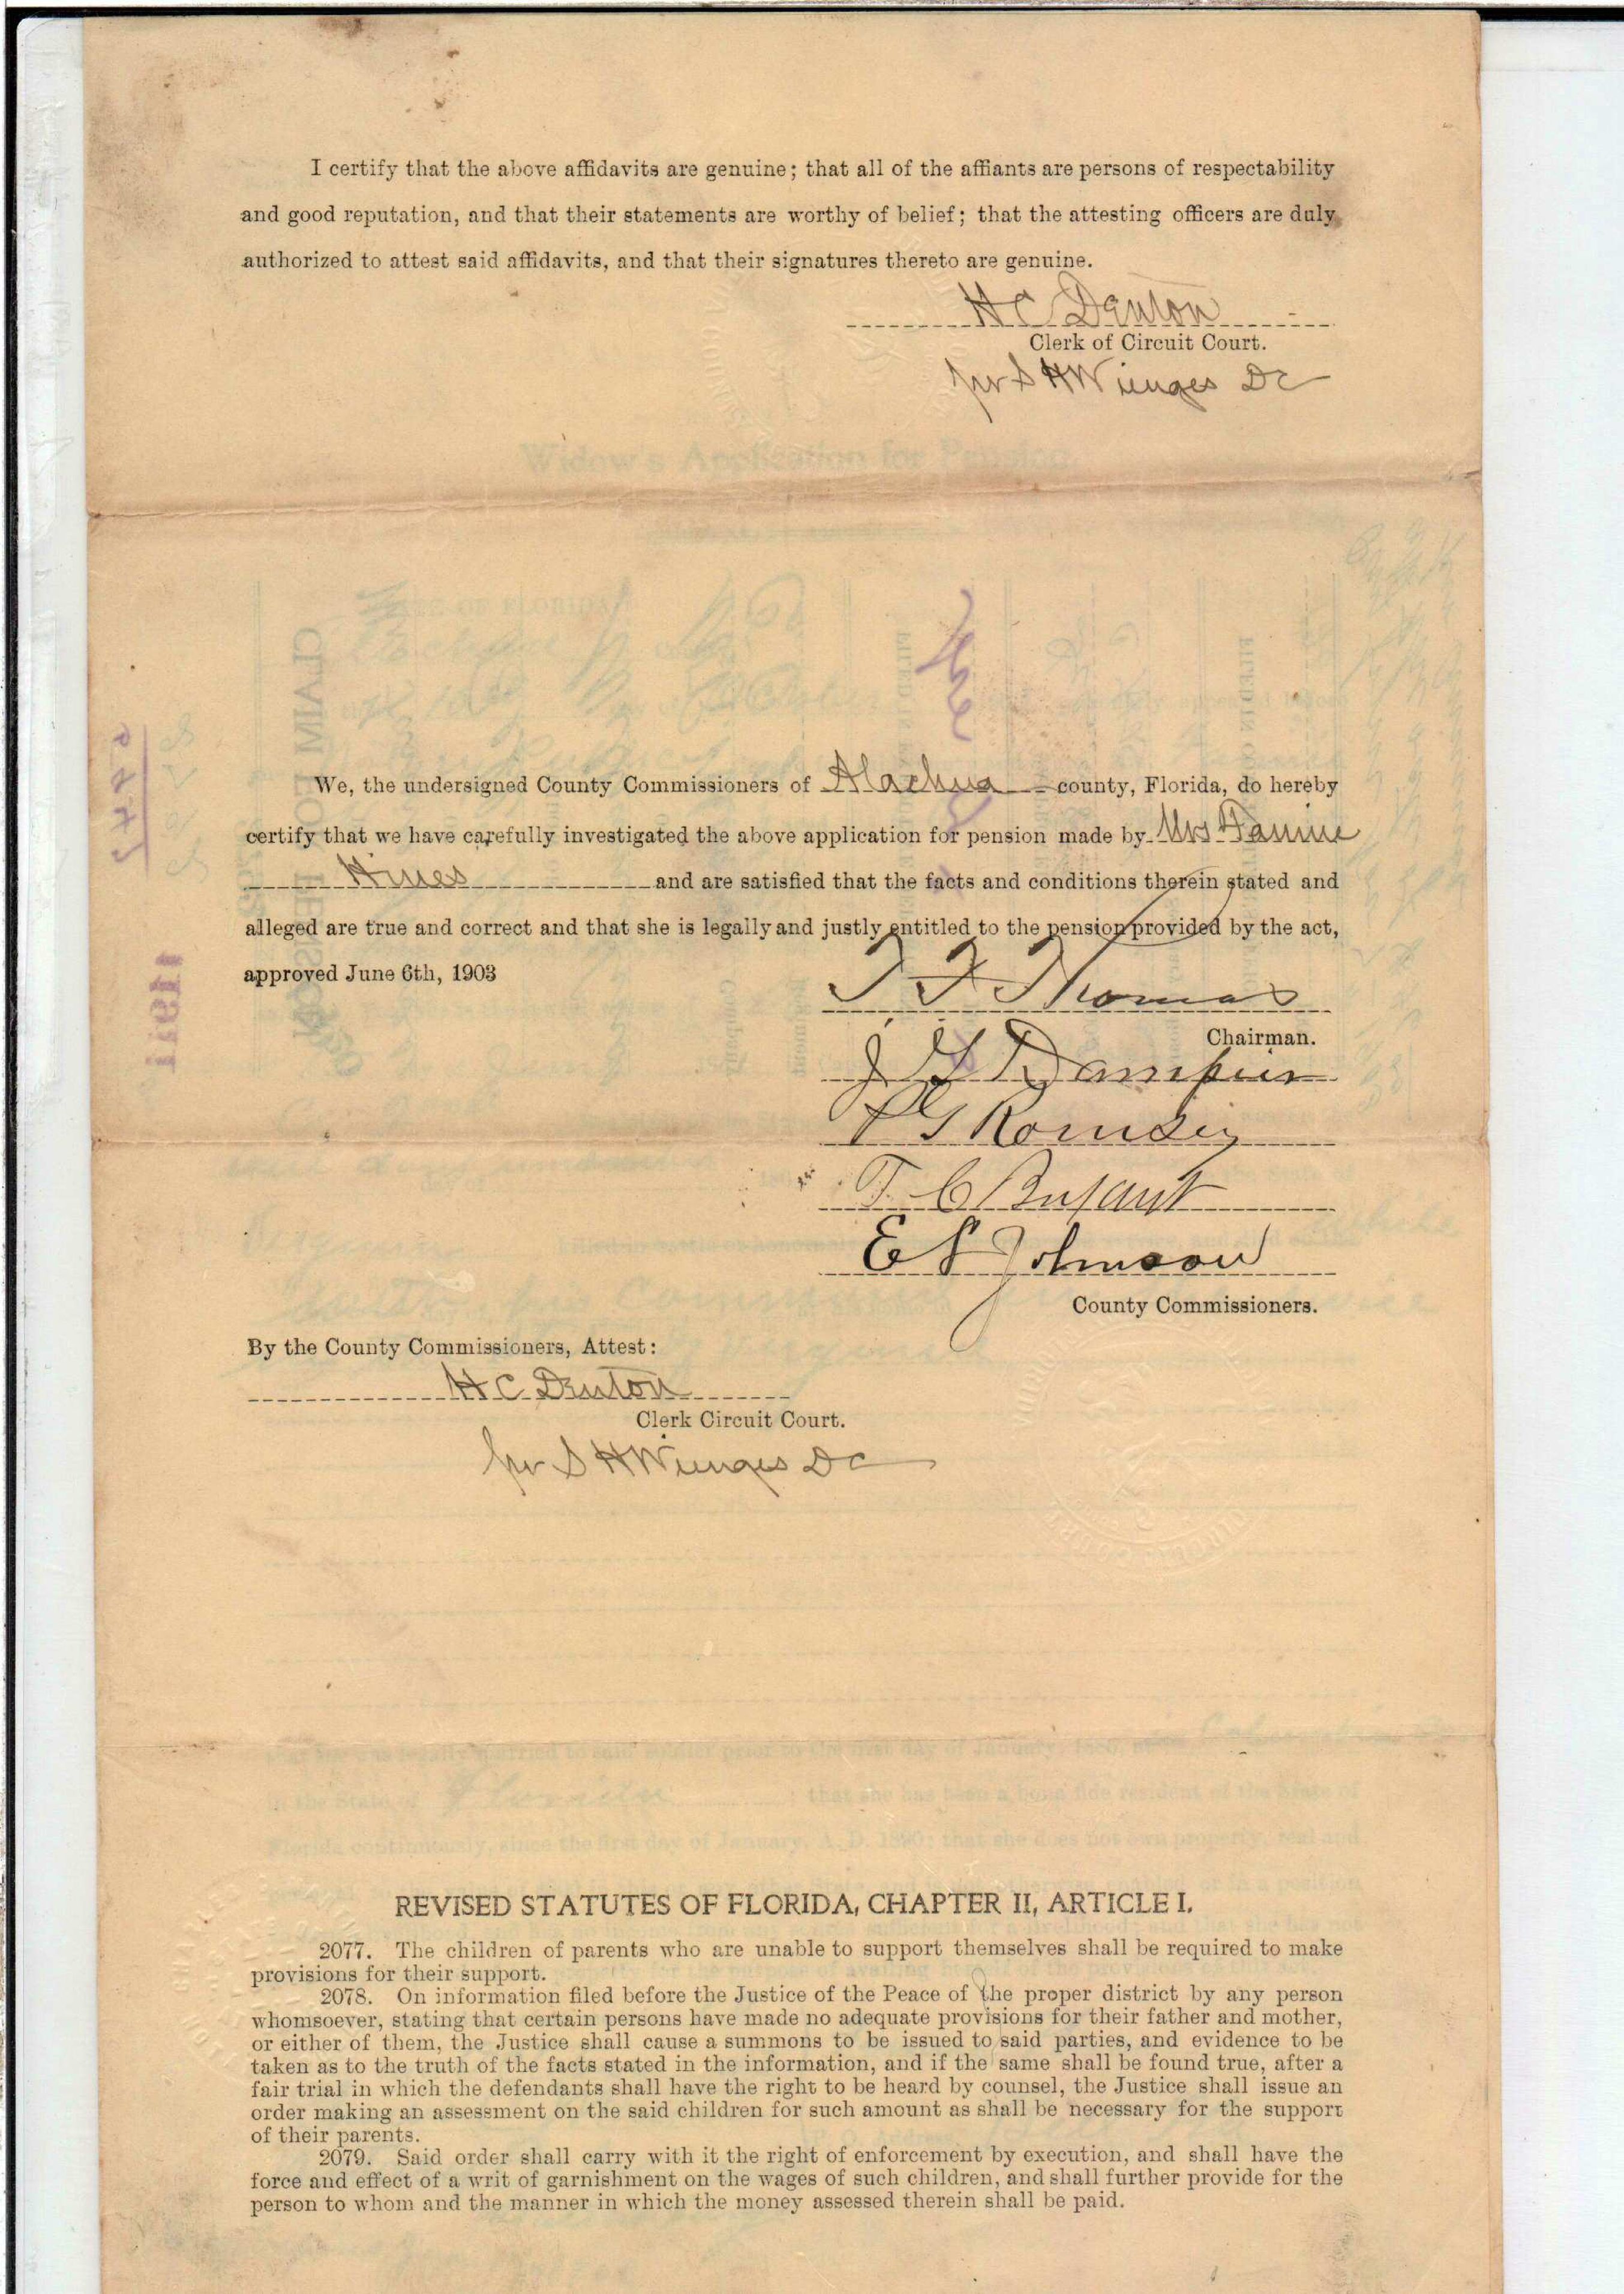 I certify that the above affidavits are genuine; that all of the affiants are persons of respectability
and good reputation, and that their statements are worthy of belief; that the attesting officers are duly
authorized to attest said affidavits, and that their signatures thereto are genuine.
H C Denton
Clerk of Circuit Court.
per S H Wienges DC
We, the undersigned County Commissioners of Alachua county, Florida, do hereby
certify that we have carefully investigated the above application for pension made by Mrs Fannie
Hines and are satisfied that the facts and conditions therein stated and
alleged are true and correct and that she is legally and justly entitled to the pension provided by the act,
approved June 6th, 1903
Thomas
Chairman.
J G Dampier
G
T. C
E S Johnson
County Commissioners.
By the County Commissioners, Attest:
H C Denton
Clerk Circuit Court.
per S H Wienges DC
REVISED STATUTES OF FLORIDA, CHAPTER II, ARTICLE I.
2077. The children of parents who are unable to support themselves shall be required to make
provisions for their support.
2078. On information filed before the Justice of the Peace of the proper district by any person
whomsoever, stating that certain persons have made no adequate provisions for their father and mother,
or either of them, the Justice shall cause a summons to be issued to said parties, and evidence to be
taken as to the truth of the facts stated in the information, and if the same shall be found true, after a
fair trial in which the defendants shall have the right to be heard by counsel, the Justice shall issue an
order making an assessment on the said children for such amount as shall be necessary for the support
of their parents.
2079. Said order shall carry with it the right of enforcement by execution, and shall have the
force and effect of a writ of garnishment on the wages of such children, and shall further provide for the
person to whom and the manner in which the money assessed therein shall be paid.